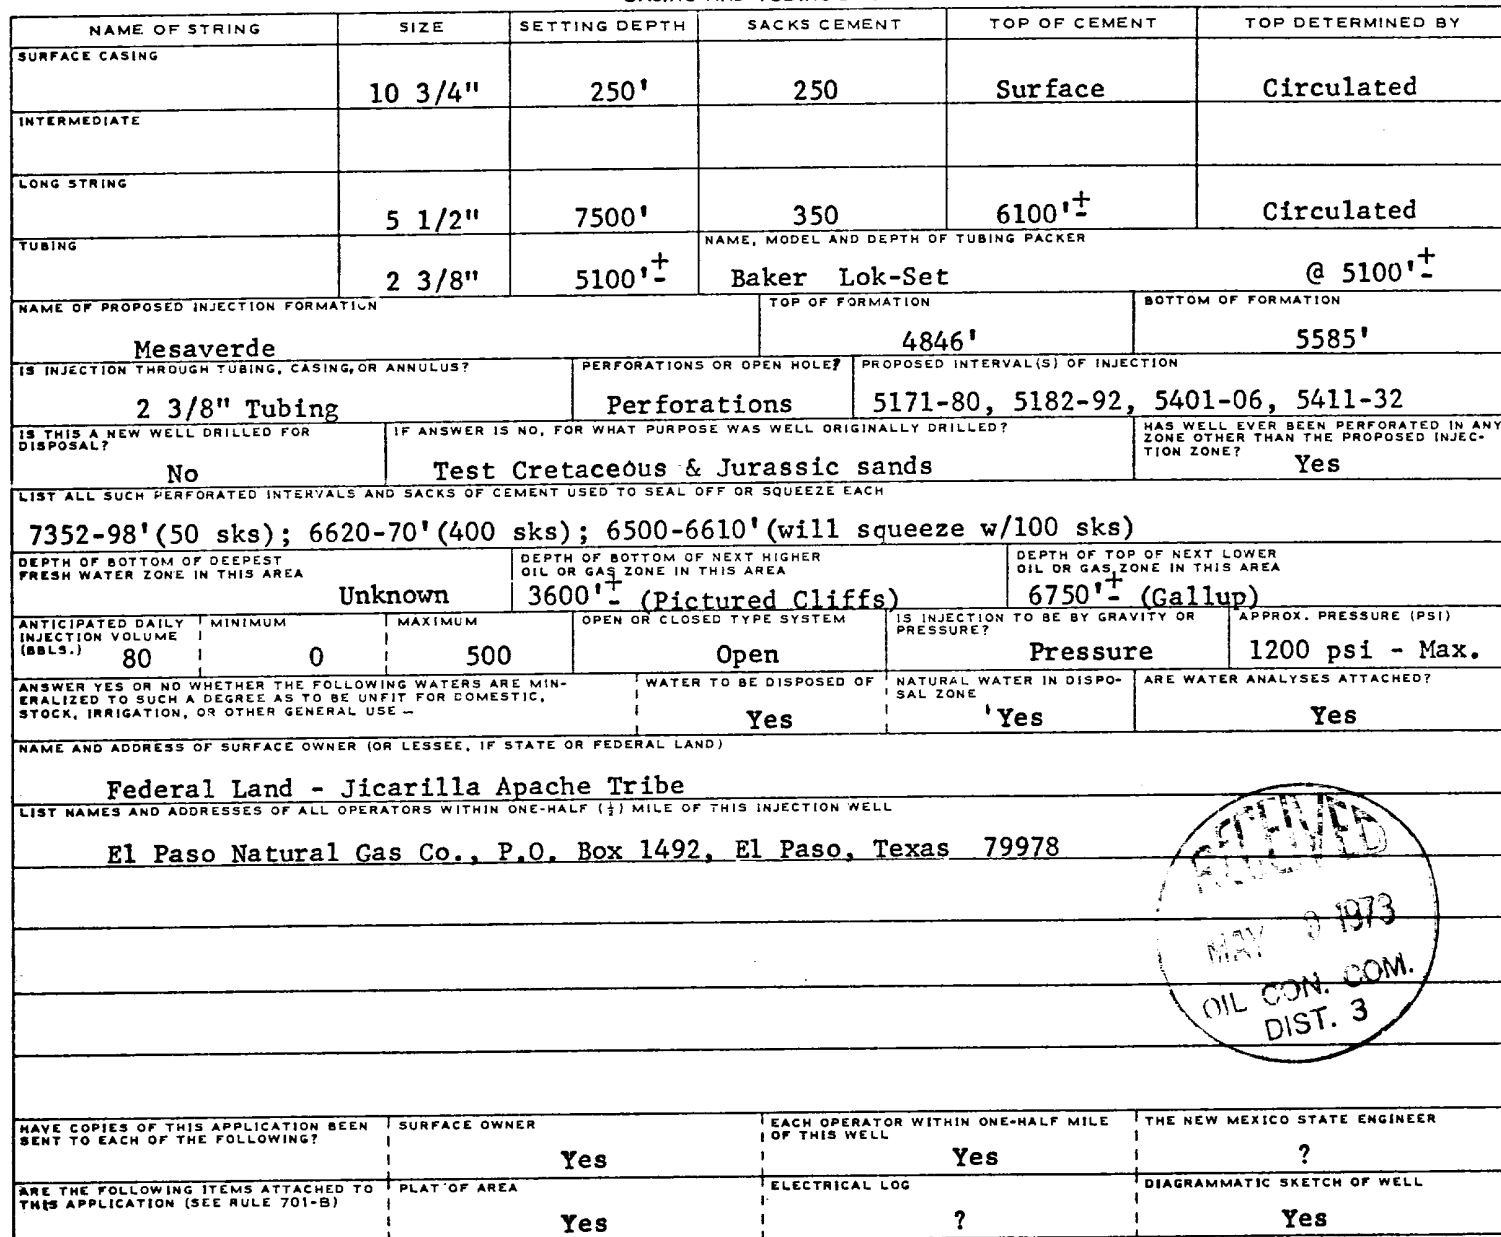 NAME OF STRING SIZE SETTING DEPTH SACKS CEMENT TOP OF CEMENT TOP DETERMINED BY
SURFACE CASING
10 3/4" 250' 250 Surface Circulated
INTERMEDIATE
LONG STRING
5 1/2" 7500' 350 6100'± Circulated
TUBING NAME, MODEL AND DEPTH OF TUBING PACKER
2 3/8" 5100'± Baker Lok-Set @ 5100'±
NAME OF PROPOSED INJECTION FORMATION TOP OF FORMATION BOTTOM OF FORMATION
Mesaverde 4846' 5585'
IS INJECTION THROUGH TUBING, CASING, OR ANNULUS? PERFORATIONS OR OPEN HOLE? PROPOSED INTERVAL(S) OF INJECTION
2 3/8" Tubing Perforations 5171-80, 5182-92, 5401-06, 5411-32
IS THIS A NEW WELL DRILLED FOR
DISPOSAL?
No
IF ANSWER IS NO, FOR WHAT PURPOSE WAS WELL ORIGINALLY DRILLED?
Test Cretaceous & Jurassic sands
HAS WELL EVER BEEN PERFORATED IN ANY
ZONE OTHER THAN THE PROPOSED INJEC-
TION ZONE?
Yes
LIST ALL SUCH PERFORATED INTERVALS AND SACKS OF CEMENT USED TO SEAL OFF OR SQUEEZE EACH
7352-98'(50 sks); 6620-70'(400 sks); 6500-6610'(will squeeze w/100 sks)
DEPTH OF BOTTOM OF DEEPEST
FRESH WATER ZONE IN THIS AREA
Unknown
DEPTH OF BOTTOM OF NEXT HIGHER
OIL OR GAS ZONE IN THIS AREA
3600'± (Pictured Cliffs)
DEPTH OF TOP OF NEXT LOWER
OIL OR GAS ZONE IN THIS AREA
6750'± (Gallup)
ANTICIPATED DAILY
INJECTION VOLUME
(BBLS.)
80
MINIMUM
0
MAXIMUM
500
OPEN OR CLOSED TYPE SYSTEM
Open
IS INJECTION TO BE BY GRAVITY OR
PRESSURE?
Pressure
APPROX. PRESSURE (PSI)
1200 psi - Max.
ANSWER YES OR NO WHETHER THE FOLLOWING WATERS ARE MIN-
ERALIZED TO SUCH A DEGREE AS TO BE UNFIT FOR DOMESTIC,
STOCK, IRRIGATION, OR OTHER GENERAL USE —
WATER TO BE DISPOSED OF
Yes
NATURAL WATER IN DISPO-
SAL ZONE
Yes
ARE WATER ANALYSES ATTACHED?
Yes
NAME AND ADDRESS OF SURFACE OWNER (OR LESSEE, IF STATE OR FEDERAL LAND)
Federal Land - Jicarilla Apache Tribe
LIST NAMES AND ADDRESSES OF ALL OPERATORS WITHIN ONE-HALF (½) MILE OF THIS INJECTION WELL
El Paso Natural Gas Co., P.O. Box 1492, El Paso, Texas 79978
RECEIVED
MAY 9 1973
OIL CON. COM.
DIST. 3
HAVE COPIES OF THIS APPLICATION BEEN
SENT TO EACH OF THE FOLLOWING?
SURFACE OWNER
Yes
EACH OPERATOR WITHIN ONE-HALF MILE
OF THIS WELL
Yes
THE NEW MEXICO STATE ENGINEER
?
ARE THE FOLLOWING ITEMS ATTACHED TO
THIS APPLICATION (SEE RULE 701-B)
PLAT OF AREA
Yes
ELECTRICAL LOG
?
DIAGRAMMATIC SKETCH OF WELL
Yes